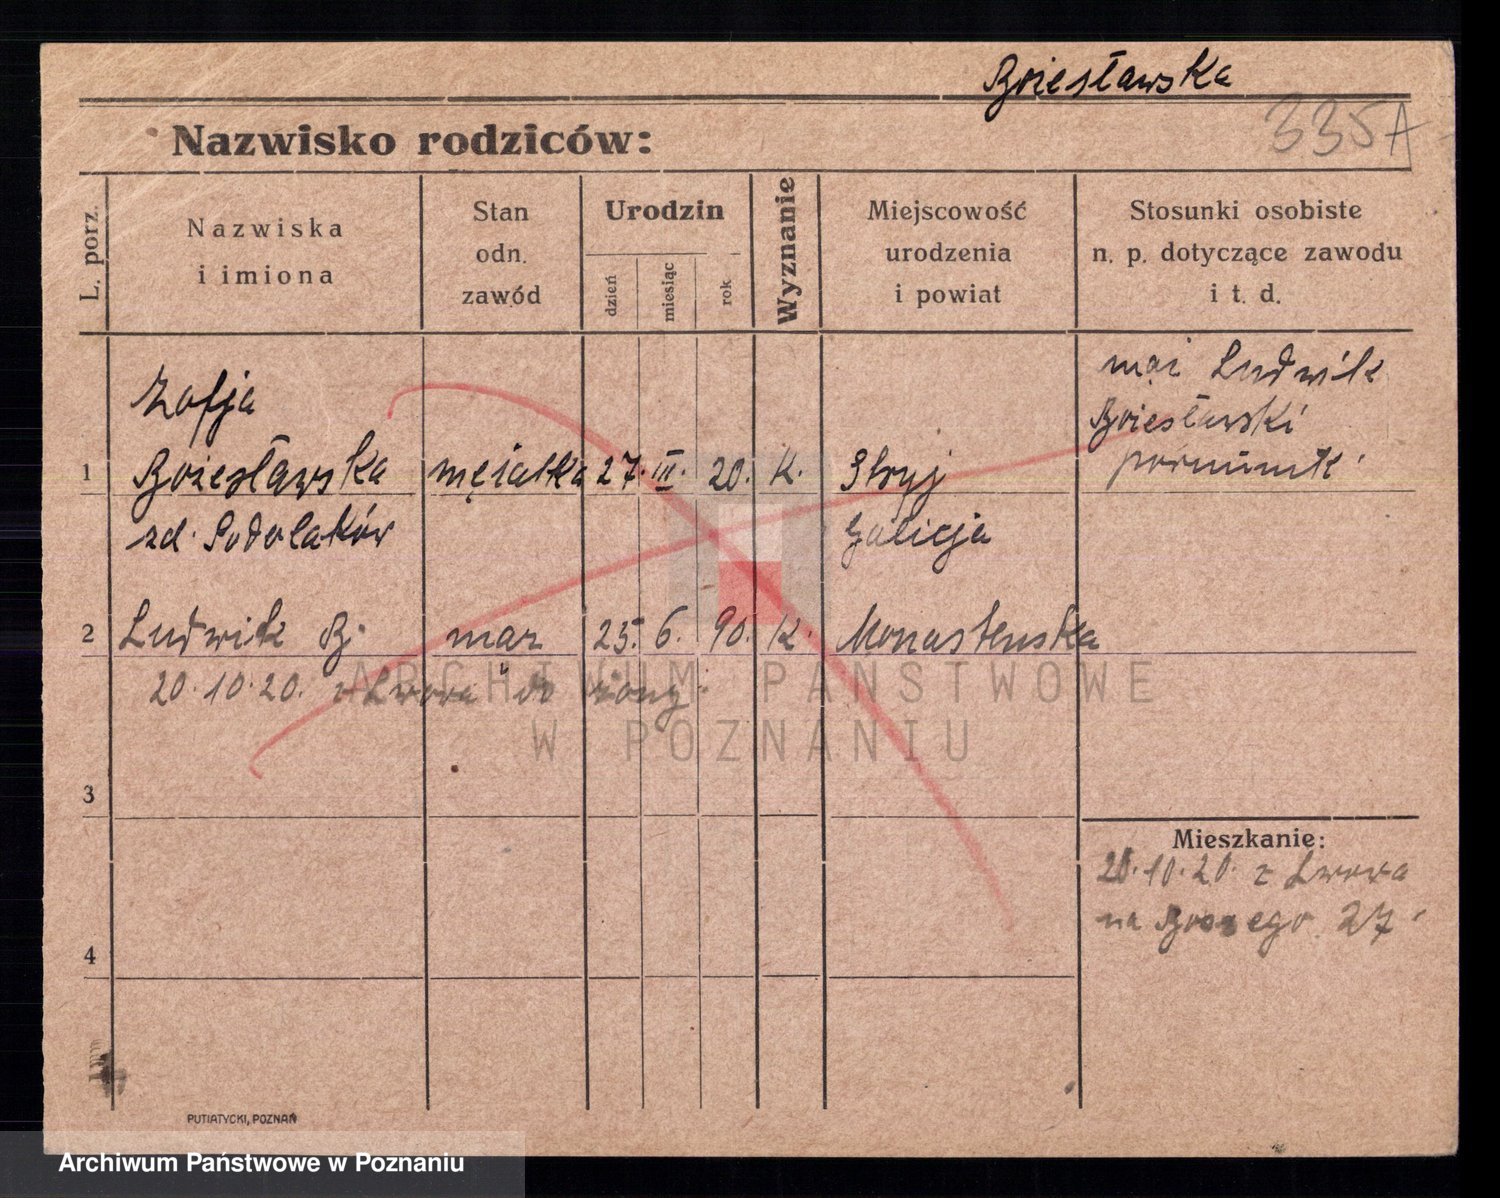 Bziesławska
335A
Nazwisko rodziców:
L. porz.
Nazwiska
i imiona
Stan
odn.
zawód
Urodzin
dzień
miesiąc
rok
Wyznanie
Miejscowość
urodzenia
i powiat
Stosunki osobiste
n. p. dotyczące zawodu
i t. d.
mąż Ludwik
Zofja
1
mężatka 27. III. 20. K. Stryj
zd. Podolaków
Galicja
2
Ludwik B. mąż 25. 6. 90. K. Monasterzska
20.10.20. z Lwowa do żony
ARCHIWUM PAŃSTWOWE
W POZNANIU
3
Mieszkanie:
20.10.20. z Lwowa
na 27
4
PUTIATYCKI, POZNAŃ
Archiwum Państwowe w Poznaniu